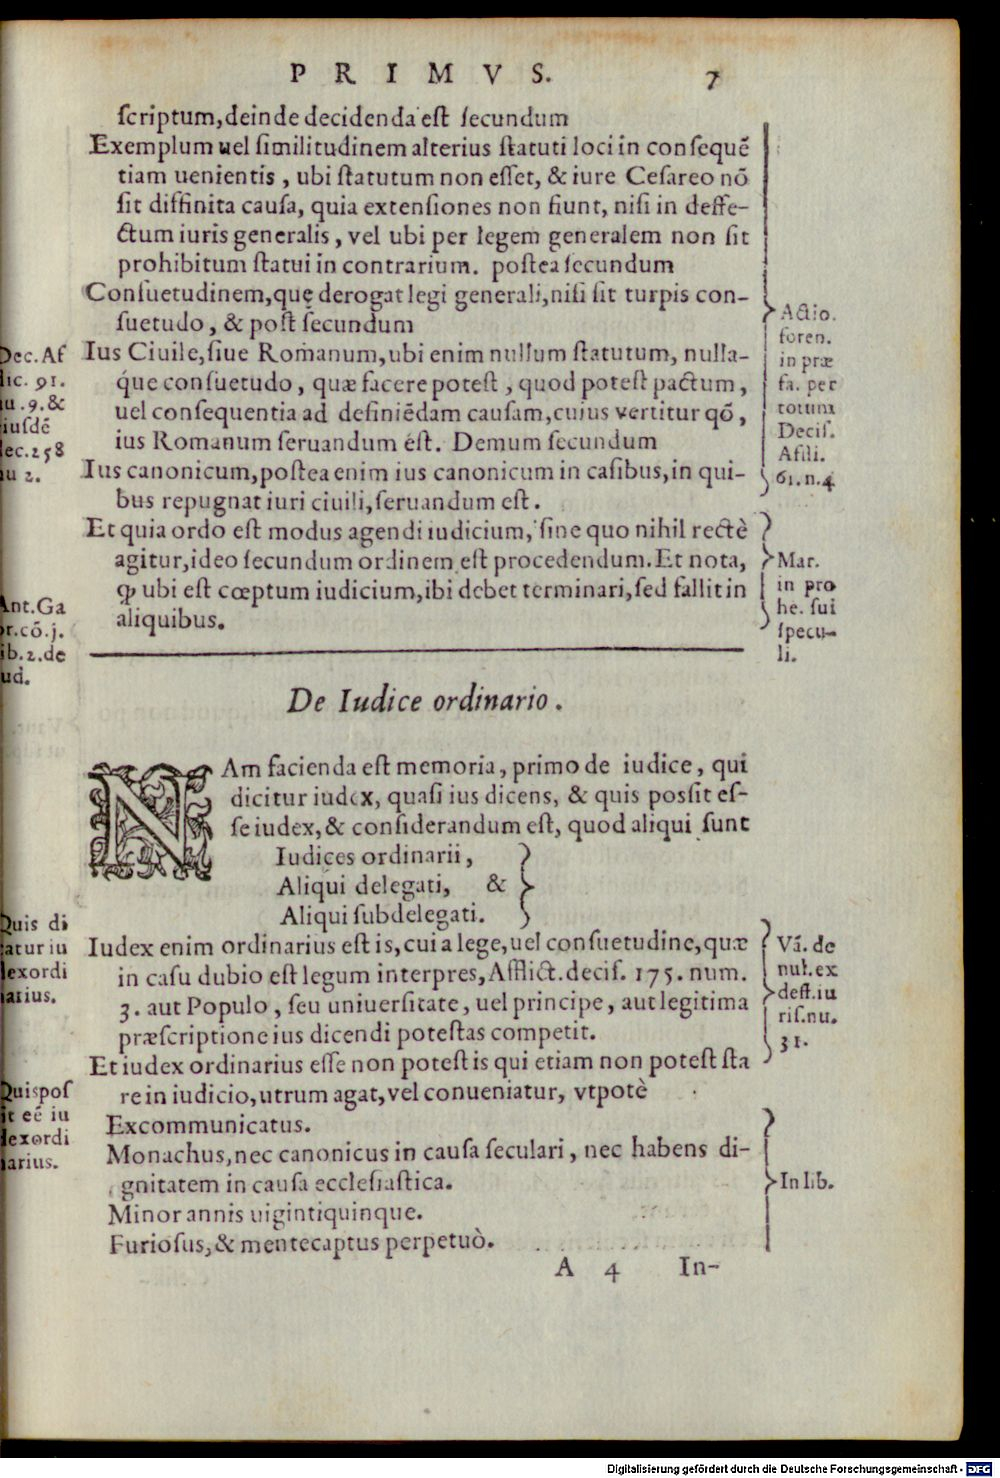 PRIMVS. 7
ſcriptum, deinde decidenda eſt ſecundum
Exemplum uel ſimilitudinem alterius ſtatuti loci in conſequẽ
tiam uenientis, ubi ſtatutum non eſſet, & iure Ceſareo nõ
ſit diffinita cauſa, quia extenſiones non fiunt, niſi in deffe-
ctum iuris generalis, vel ubi per legem generalem non ſit
prohibitum ſtatui in contrarium. poſtea ſecundum
Conſuetudinem, quę derogat legi generali, niſi ſit turpis con-
ſuetudo, & poſt ſecundum
Ius Ciuile, ſiue Romanum, ubi enim nullum ſtatutum, nulla-
q́ue conſuetudo, quæ facere poteſt, quod poteſt pactum,
uel conſequentia ad definiẽdam cauſam, cuius vertitur qõ,
ius Romanum ſeruandum eſt. Demum ſecundum
Ius canonicum, poſtea enim ius canonicum in caſibus, in qui-
bus repugnat iuri ciuili, ſeruandum eſt.
Et quia ordo eſt modus agendi iudicium, ſine quo nihil rectè
agitur, ideo ſecundum ordinem eſt procedendum. Et nota,
ꝙ ubi eſt cœptum iudicium, ibi debet terminari, ſed fallit in
aliquibus.
Dec. Af
lic. 91.
nu. 9. &
iuſdẽ
dec. 258
nu 2.
Ant. Ga
or. cõ. j.
ib. 2. de
ud.
Actio.
foren.
in præ
fa. per
totum
Deciſ.
Afili.
61. n. 4
Mar.
in pro
he. ſui
ſpecu-
li.
De Iudice ordinario.
NAm facienda eſt memoria, primo de iudice, qui
dicitur iudex, quaſi ius dicens, & quis poſſit eſ-
ſe iudex, & conſiderandum eſt, quod aliqui ſunt
Iudices ordinarii,
Aliqui delegati, &
Aliqui ſubdelegati.
Iudex enim ordinarius eſt is, cui a lege, uel conſuetudine, quæ
in caſu dubio eſt legum interpres, Afflict. deciſ. 175. num.
3. aut Populo, ſeu uniuerſitate, uel principe, aut legitima
præſcriptione ius dicendi poteſtas competit.
Et iudex ordinarius eſſe non poteſt is qui etiam non poteſt ſta
re in iudicio, utrum agat, vel conueniatur, vtpotè
Excommunicatus.
Monachus, nec canonicus in cauſa ſeculari, nec habens di-
gnitatem in cauſa eccleſiaſtica.
Minor annis uigintiquinque.
Furioſus, & mentecaptus perpetuò.
Quis di
catur iu
dex ordi
narius.
Quis poſ
ſit eẽ iu
dex ordi
narius.
Vã. de
nul. ex
deff. iu
riſ. nu.
31.
In lib.
A 4 In-
Digitalisierung gefördert durch die Deutsche Forschungsgemeinschaft - DFG